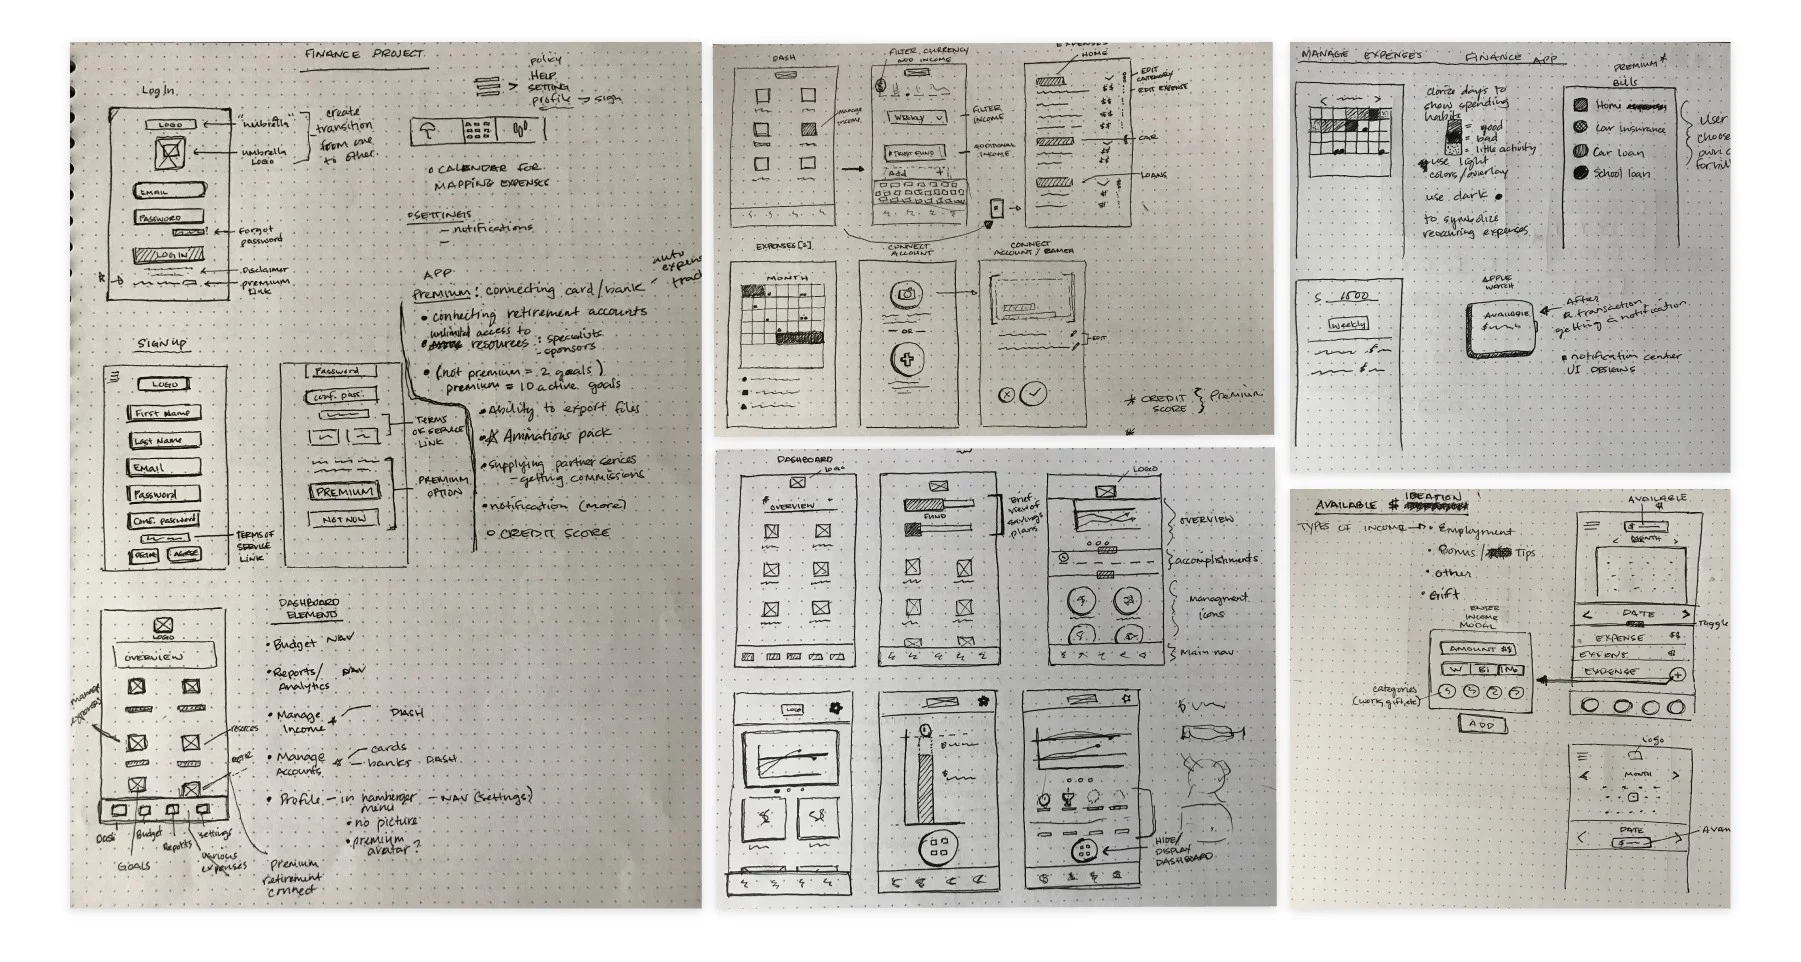 FINANCE PROJECT
policy
HELP
SETTING
profile → sign
Log In
LOGO
"umbrella"
umbrella
LOGO
create
transition
from one
to other.
EMAIL
PASSWORD
forgot
password
LOG IN
Disclaimer
premium
Link
• CALENDAR FOR
MAPPING EXPENSES
• SETTINGS
– notifications
–
auto
APP
Premium: connecting card/bank
• connecting retirement accounts
unlimited access to
• resources : specialists
- sponsors
• (not premium = 2 goals)
premium = 10 active goals
• Ability to export files
• Animations pack
• supplying partner services
- getting commissions
• notification (more)
○ CREDIT SCORE
SIGN UP
LOGO
First Name
Last Name
Email
Password
Conf. password
AGREE
TERMS OF
SERVICE
LINK
Password
Conf. pass.
TERMS
OF SERVICE
LINK
PREMIUM
NOT NOW
PREMIUM
OPTION
LOGO
OVERVIEW
manage
Dash
Budget
Reports
settings
GOALS
various
expenses
premium
retirement
connect
DASHBOARD
ELEMENTS
• Budget NAV
• Reports/ NAV
Analytics
• Manage DASH
Income
• Manage – cards
Accounts – banks DASH
• Profile – in hamberger – NAV (settings)
menu
• no picture
• premium
avatar?
DASH
MANAGE
INCOME
FILTER CURRENCY
ADD INCOME
WEEKLY
FILTER
INCOME
TRUST FUND
ADDITIONAL
INCOME
Add +
EXPENSES
HOME
EDIT
CATEGORY
EDIT EXPENSE
CAR
LOANS
EXPENSES [2]
MONTH
CONNECT
ACCOUNT
– OR –
CONNECT
ACCOUNT / CAMERA
EDIT
* CREDIT
SCORE } Premium
DASHBOARD
LOGO
OVERVIEW
FUND
Brief
view of
savings
plans
LOGO
OVERVIEW
accomplishments
Managment
icons
Main nav
LOGO
HIDE/
DISPLAY
DASHBOARD
MANAGE EXPENSES FINANCE APP
PREMIUM*
Bills
days to
show spending
habits
= good
= bad
= little activity
* use light
colors/overlay
use dark ●
to symbolize
reoccuring expenses
Home
Car Insurance
Car loan
School loan
User
$ 1500
Weekly
APPLE
WATCH
AVAILABLE
After
a transaction
getting a notification
• notification center
UI DESIGNS
AVAILABLE $ IDEATION
TYPES OF INCOME → • Employment
• Bonus / Tips
• other
• Gift
ENTER
INCOME
MODAL
AMOUNT $$
W Bi Mo
categories
(work, gift, etc)
ADD
AVAILABLE
$
MONTH
< DATE >
Toggle
EXPENSE $$
EXPENSE +
LOGO
MONTH
DATE